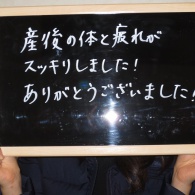 産後の体と疲れが
スッキリしました!
ありがとうございました!